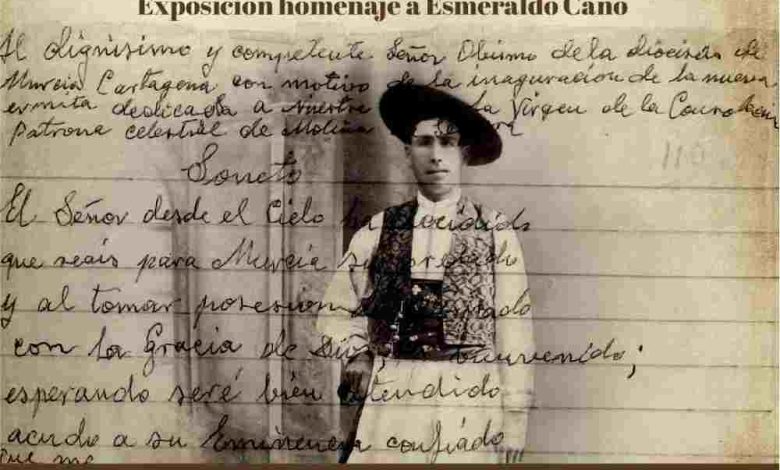 Exposición homenaje a Esmeraldo Cano
Al dignísimo y competente Señor Obismo de la diocisis de
Murcia Cartagena con motivo de la inaguracion de la nueva
ermita dedicada a nuestra la Virgen de la Consolacion
Patrona celestial de Molina
115
Soneto
El Señor desde el Cielo ha decidido
que seais para Murcia su prelado
y al tomar posesion
con la Gracia de Dios, bienvenido;
esperando seré bien atendido
acudo a su Eminencia confiado
que me